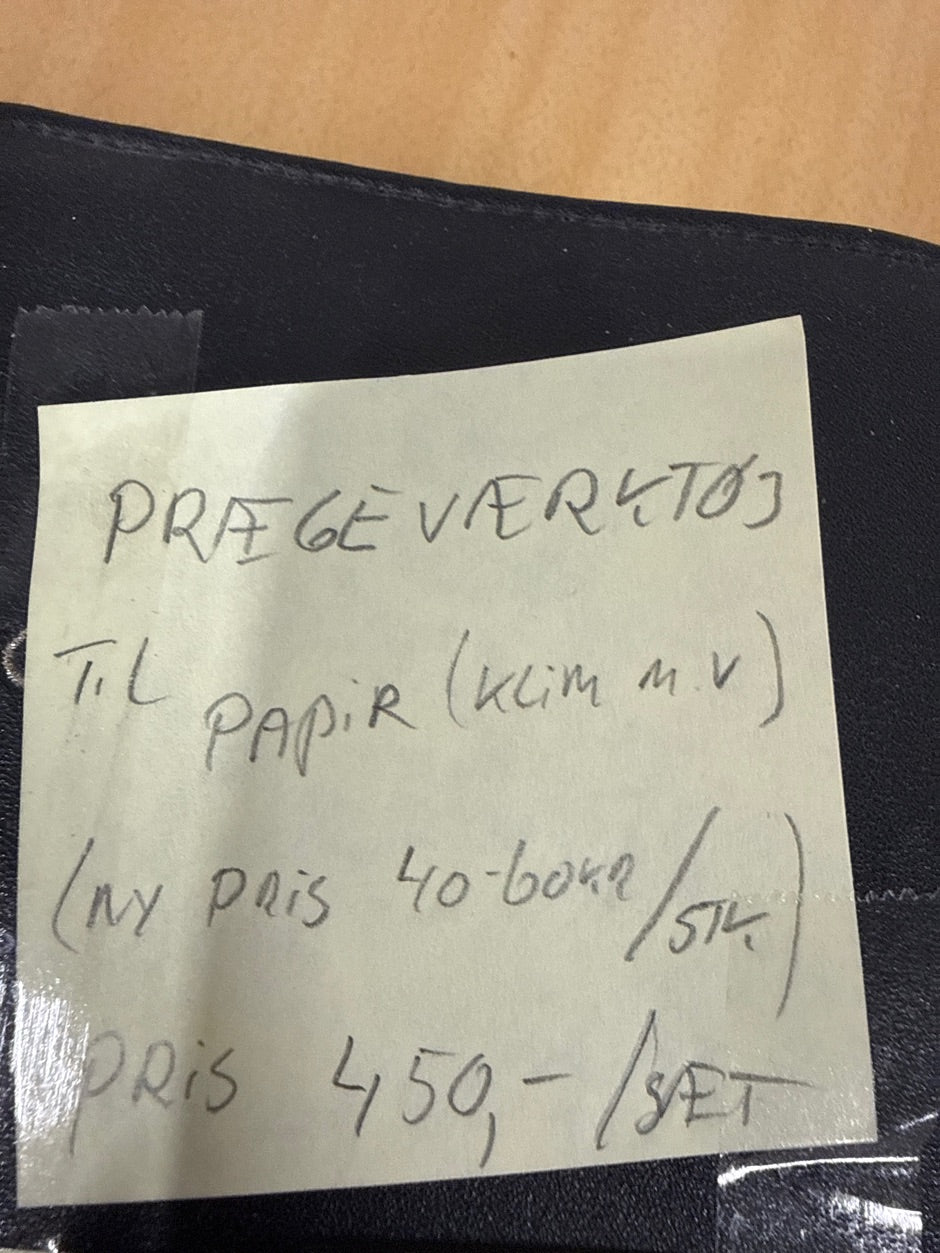 PRÆGEVÆRKTØJ
TIL PAPiR (KLiM M.V)
(NY PRiS 40-60KR/STK.)
PRiS 450,- /SÆT